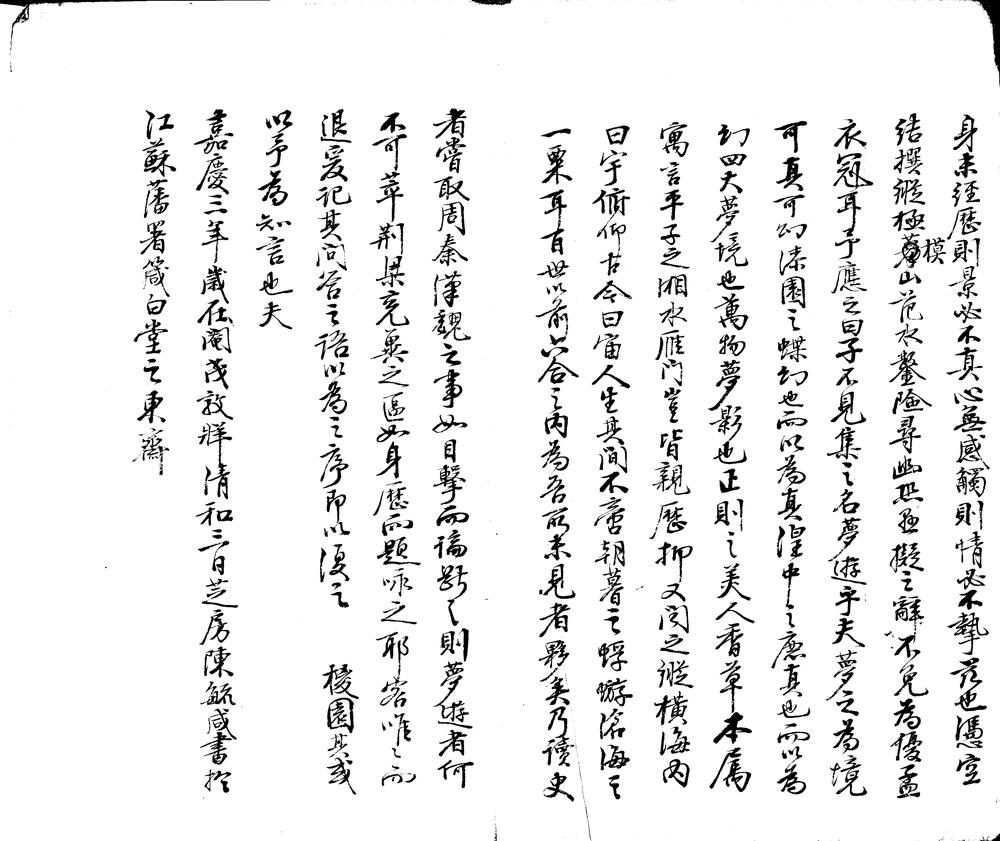 身未經歷則景必不真心無感觸則情必不摯茲也憑空
結撰縱極模山范水鑿險尋幽恐亞擬之辭不免為優孟
衣冠耳予應之曰子不見集之名夢遊乎夫夢之為境
可真可幻漆園之蝶幻也而以為真隍中之鹿真也而以為
幻四大夢境也萬物夢影也正則之美人香草本屬
寓言平子之湘水雁門豈皆親歷抑又聞之縱橫海內
曰宇俯仰古今曰宙人生其間不啻朝暮之蜉蝣滄海之
一粟耳百世以前六合之內為吾所未見者夥矣乃讀史
者嘗取周秦漢魏之事如目擊而論斷之則夢遊者何
不可萃荊梁兗冀之區如身歷而題咏之耶客唯之而
退爰記其問答之語以為之序即以復之 稜園其或
以予為知言也夫
嘉慶三年歲在閹茂敦牂清和三日芝房陳毓咸書於
江蘇藩署箴白堂之東齋